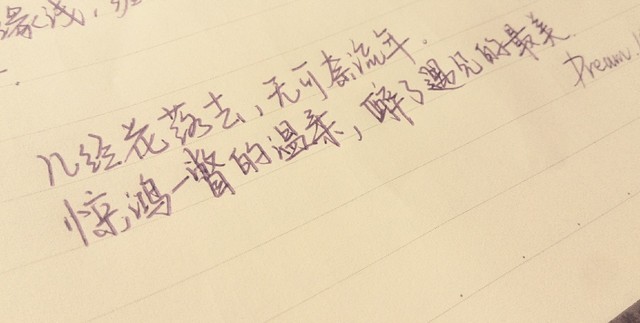 缘浅，
几经花落去，无可奈流年.
惊鸿一瞥的温柔，醉了遇见的最美.
Dream